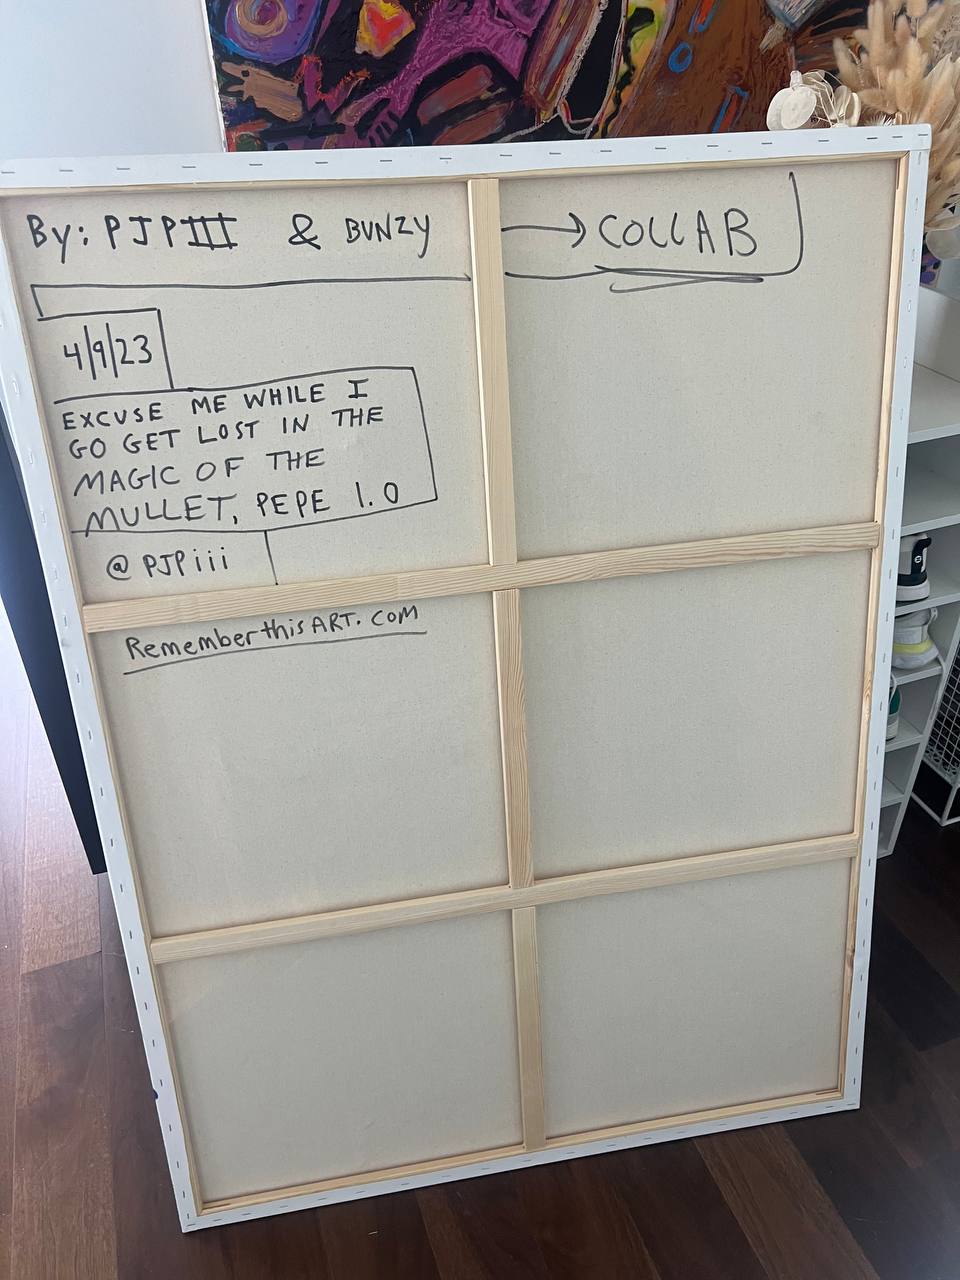 By: PJPIII & BUNZY → COLLAB
4/9/23
EXCUSE ME WHILE I
GO GET LOST IN THE
MAGIC OF THE
MULLET, PEPE 1.0
@PJPiii
RememberthisART.COM